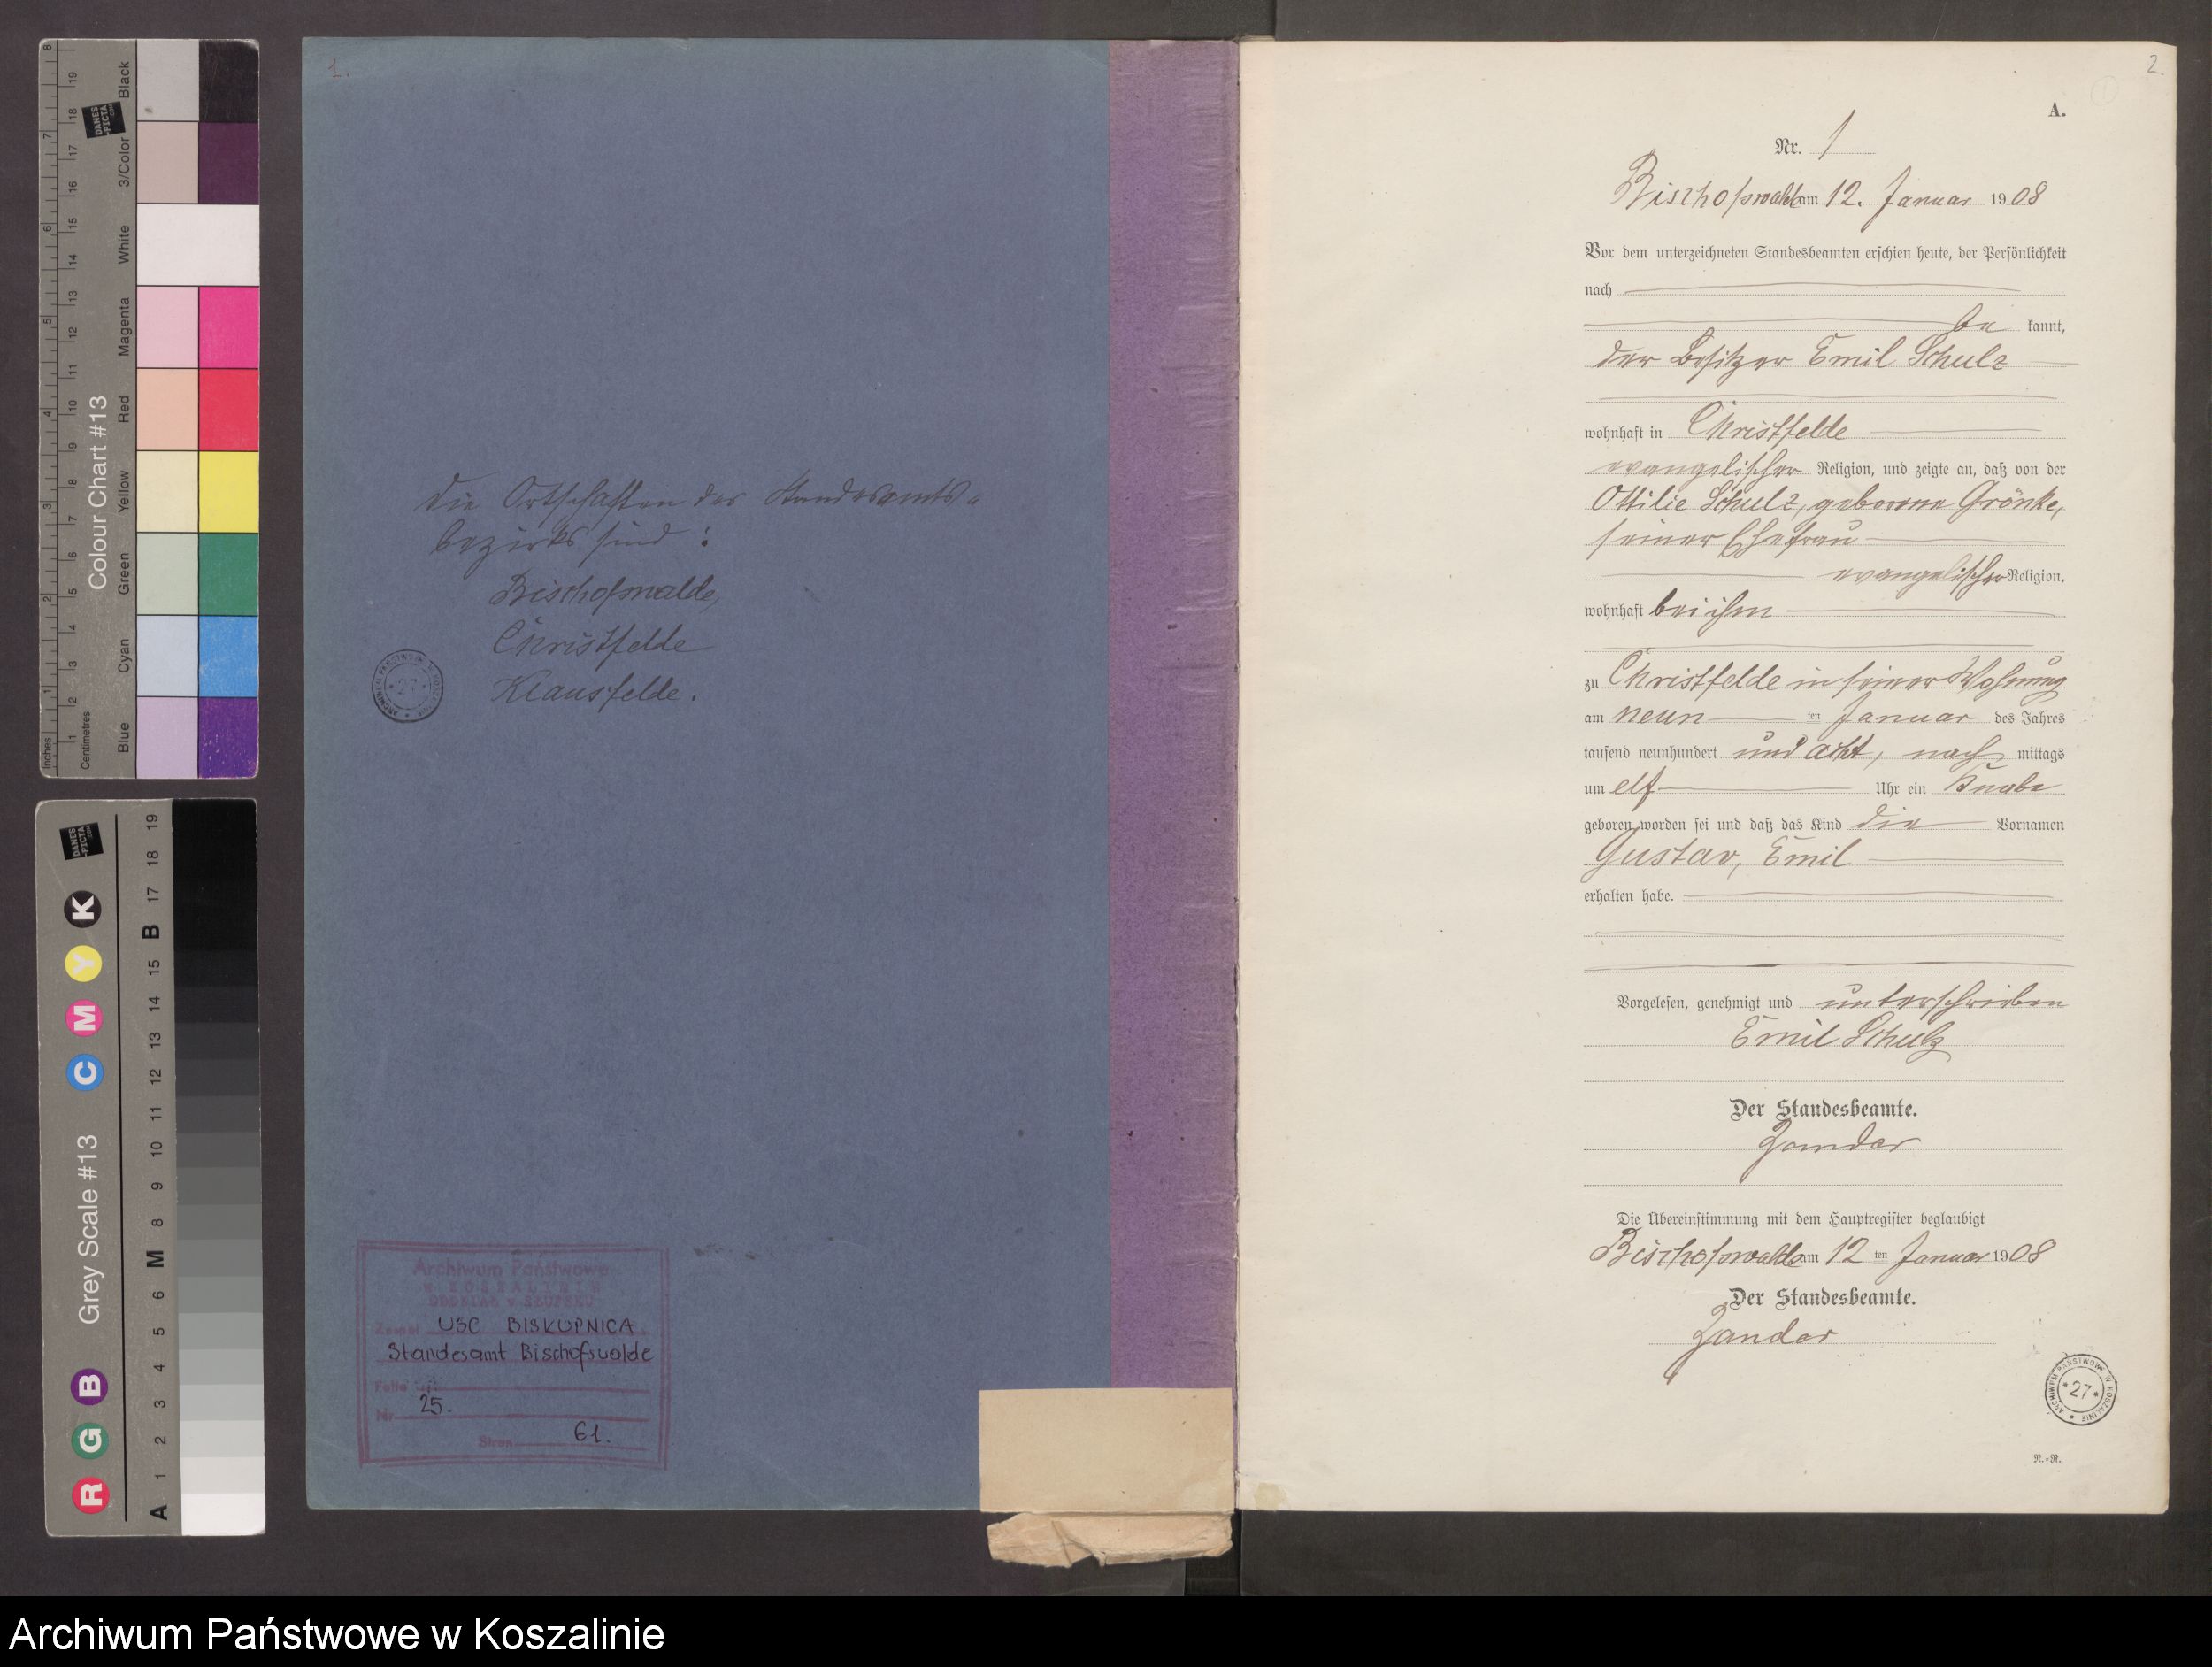 1.
Die Ortschaften des Standesamts-
bezirks sind:
Bischofswalde,
Christfelde
Klausfelde.
ARCHIWUM PAŃSTWOWE W KOSZALINIE
* 27 *
Archiwum Państwowe
w KOSZALINIE
ODDZIAŁ w SŁUPSKU
Zespół USC BISKUPNICA
Standesamt Bischofswalde
Nr 25.
Stron 61.
2.
1
A.
Nr. 1
Bischofswalde am 12. Januar 1908
Vor dem unterzeichneten Standesbeamten erschien heute, der Persönlichkeit
nach
be kannt,
der Besitzer Emil Schulz
wohnhaft in Christfelde
evangelischer Religion, und zeigte an, daß von der
Ottilie Schulz, geborene Grönke,
seiner Ehefrau
evangelischer Religion,
wohnhaft bei ihm
zu Christfelde in seiner Wohnung
am neun ten Januar des Jahres
tausend neunhundert und acht, nach mittags
um elf Uhr ein Knabe
geboren worden sei und daß das Kind die Vornamen
Gustav, Emil
erhalten habe.
Vorgelesen, genehmigt und unterschrieben
Emil Schulz
Der Standesbeamte.
Zander
Die Übereinstimmung mit dem Hauptregister beglaubigt
Bischofswalde am 12 ten Januar 1908
Der Standesbeamte.
Zander
ARCHIWUM PAŃSTWOWE W KOSZALINIE
* 27 *
N.-R.
Colour Chart #13
Black
3/Color
White
Magenta
Red
Yellow
Green
Cyan
Blue
Inches
Centimetres
DANES
PICTA
.COM
8 7 6 5 4 3 2 1
19 18 17 16 15 14 13 12 11 10 9 8 7 6 5 4 3 2 1
Grey Scale #13
DANES
PICTA
.COM
R G B C M Y K
A 1 2 3 4 5 6 M 8 9 10 11 12 13 14 15 B 17 18 19
Archiwum Państwowe w Koszalinie